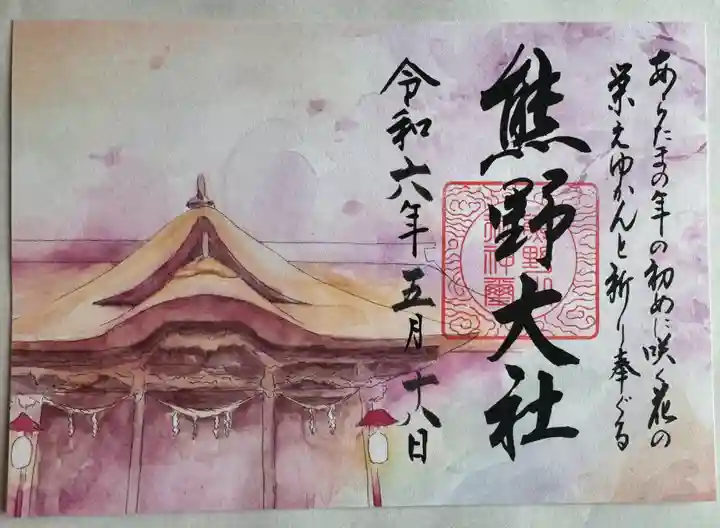 あらたまの年の初めに咲く花の
栄えゆかんと祈り奉ぐる
熊野大社
令和六年五月十八日